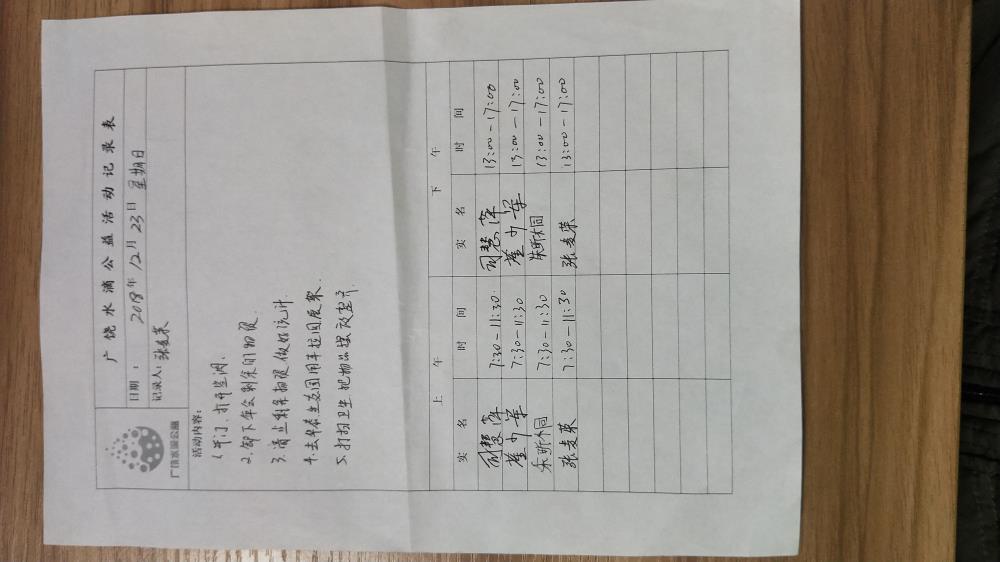 广饶水滴公益活动记录表
广饶水滴公益
日期: 2018年12月23日 星期日
记录人: 张麦荣
活动内容:
1.开门、打开空调.
2.卸下年会剩余的物资.
3.清点剩余物资做好统计.
4.去
5.打扫卫生把物品摆放整齐.
上午 下午
实名 时间 实名 时间
7:30-11:30 13:00-17:00
7:30-11:30 13:00-17:00
7:30-11:30 13:00-17:00
张麦荣 7:30-11:30 张麦荣 13:00-17:00